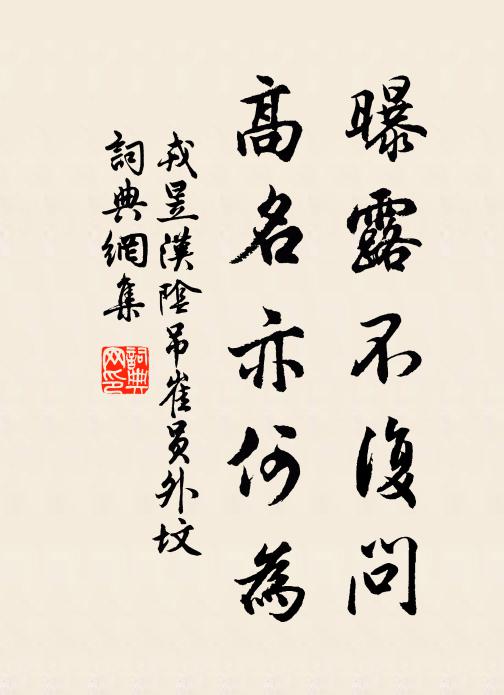 曝露不復問
高名亦何為
戎昱漢陰吊崔員外墳
詞典網集
詞典网印